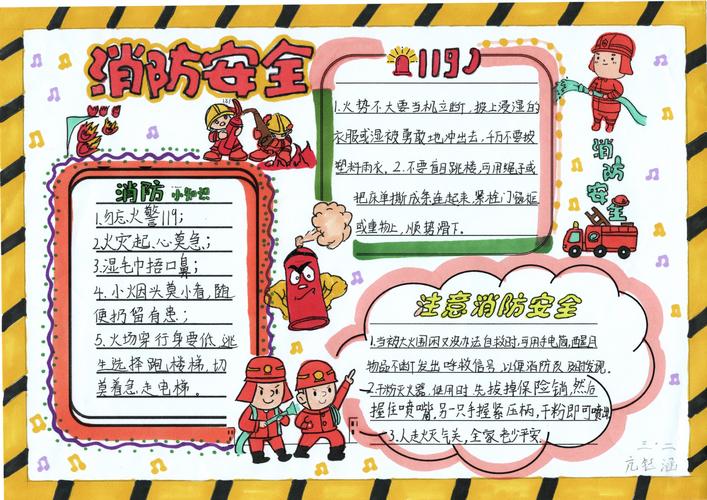 消防安全
119
1.火势不大要当机立断,披上浸湿的
衣服或湿被勇敢地冲出去,千万不要披
塑料雨衣。2.不要盲目跳楼,可用绳子或
把床单撕成条连起来,紧拴门窗框
或重物上,顺势滑下。
消防安全
消防小知识
1.勿忘火警119;
2.火灾起,心莫急;
3.湿毛巾捂口鼻;
4.小烟头莫小看,随
便扔留有患;
5.火场穿行身要低,逃
生选择跑楼梯,切
莫着急走电梯。
注意消防安全
1.当被大火围困又没办法自救时,可用手电筒,醒目
物品不断发出呼救信号,以便消防员及时发现。
2.干粉灭火器,使用时先拔掉保险销,然后
握住喷嘴,另一只手握紧压柄,干粉即可喷出
3.人走火灭气关,全家老少平安.
三.二
涵